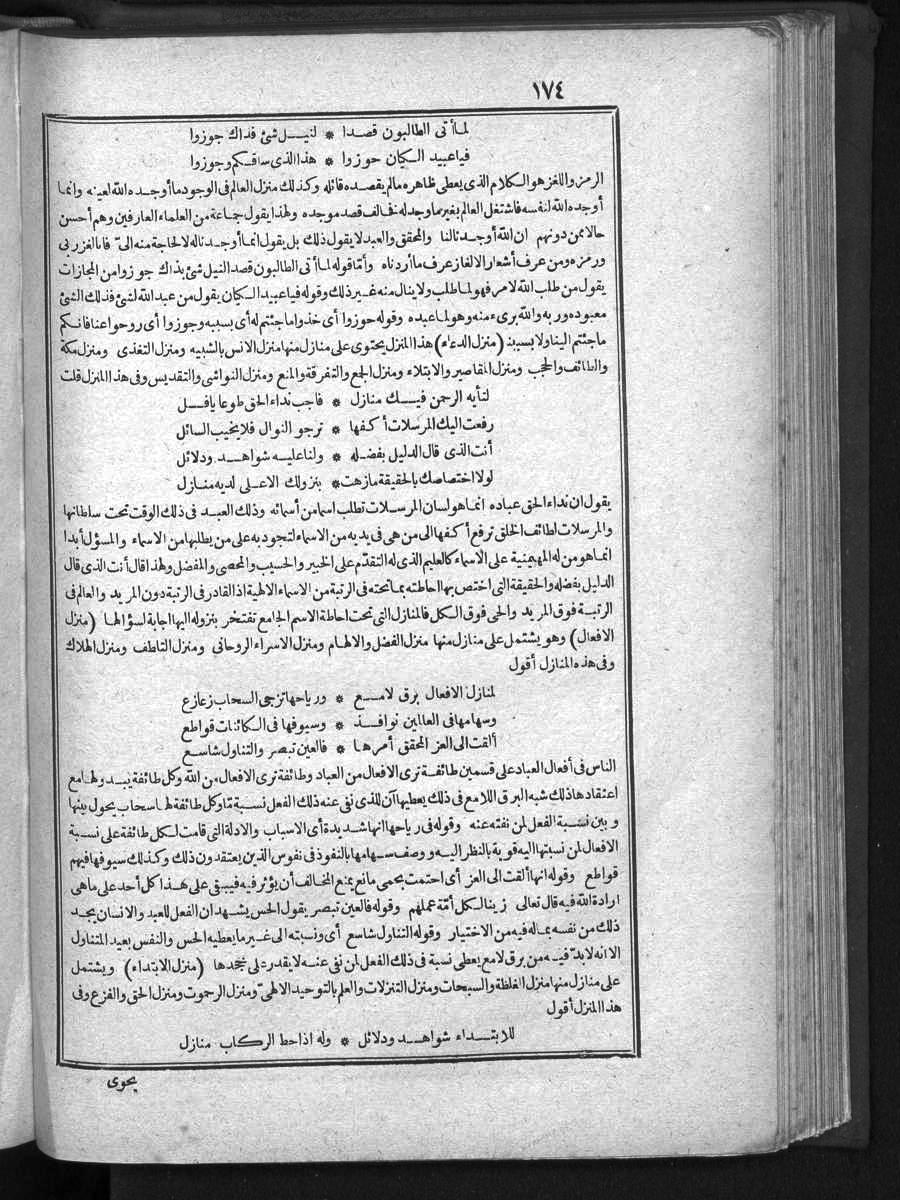 ١٧٤
لما أتى الطالبون قصدا * لنيل شئ فداك جوزوا
فيا عبيد الكيان حوزوا * هذا الذى ساقكم وجوزوا
الرمز واللغز هو الكلام الذى يعطى ظاهره مالم يقصده قائله وكذلك منزل العالم فى الوجود ما أوجده الله لعينه وانما
أوجده الله لنفسه فاشتغل العالم بغير ما وجد له فخالف قصد موجده ولهذا يقول جماعة من العلماء العارفين وهم أحسن
حالا ممن دونهم ان الله أوجدنا لنا والمحقق والعبد لا يقول ذلك بل يقول انما أوجدنا له لا لحاجة منه الىّ فانا لغز ربى
ورمزه ومن عرف أشعار الالغاز عرف ما أردناه وأما قوله لما أتى الطالبون قصد النيل شئ بذاك جوزوا من المجازات
يقول من طلب الله لامر فهو لما طلب ولا ينال منه غير ذلك وقوله فيا عبيد الكيان يقول من عبد الله لشئ فذلك الشئ
معبوده وربه والله برىء منه وهو لما عبده وقوله حوزوا أى خذوا ما جئتم له أى بسببه وجوزوا أى روحوا عنا فانكم
ما جئتم الينا ولا بسببنا (منزل الدعاء) هذا المنزل يحتوى على منازل منها منزل الانس بالشبيه ومنزل التغذى ومنزل مكة
والطائف والحجب ومنزل المقاصير والابتلاء ومنزل الجمع والتفرقة والمنع ومنزل النواشى والتقديس وفى هذا المنزل قلت
لتأيه الرحمن فيك منازل * فاجب نداء الحق طوعا يا فل
رفعت اليك المرسلات أكفها * ترجو النوال فلا يخيب السائل
أنت الذى قال الدليل بفضله * ولنا عليه شواهد ودلائل
لولا اختصاصك بالحقيقة مازهت * بنزولك الاعلى لديه منازل
يقول ان نداء الحق عباده انما هو لسان المرسلات تطلب اسما من أسمائه وذلك العبد فى ذلك الوقت تحت سلطانها
والمرسلات لطائف الخلق ترفع أكفها الى من هى فى يديه من الاسماء لتجود به على من يطلبها من الاسماء والمسؤل أبدا
انما هو من له المهيمنية على الاسماء كالعليم الذى له التقدّم على الخبير والحسيب والمحصى والمفضل ولهذا قال أنت الذى قال
الدليل بفضله والحقيقة التى اختص بها احاطته بما تحته فى الرتبة من الاسماء الالهية اذ القادر فى الرتبة دون المريد والعالم فى
الرتبة فوق المريد والحى فوق الكل فالمنازل التى تحت احاطة الاسم الجامع تفتخر بنزوله اليها اجابة لسؤالها (منزل
الافعال) وهو يشتمل على منازل منها منزل الفضل والالهام ومنزل الاسراء الروحانى ومنزل التلطف ومنزل الهلاك
وفى هذه المنازل أقول
لمنازل الافعال برق لامع * ورياحها تزجى السحاب زعازع
وسهامها فى العالمين نوافذ * وسيوفها فى الكائنات قواطع
ألقت الى العز المحقق أمرها * فالعين تبصر والتناول شاسع
الناس فى أفعال العباد على قسمين طائفة ترى الافعال من العباد وطائفة ترى الافعال من الله وكل طائفة يبدو لها مع
اعتقادها ذلك شبه البرق اللامع فى ذلك يعطيها أن للذى نفى عنه ذلك الفعل نسبة مّا وكل طائفة لها سحاب يحول بينها
وبين نسبة الفعل لمن نفته عنه وقوله فى رياحها انها شديدة أى الاسباب والادلة التى قامت لكل طائفة على نسبة
الافعال لمن نسبتها اليه قوية بالنظر اليه ووصف سهامها بالنفوذ فى نفوس الذين يعتقدون ذلك وكذلك سيوفها فيهم
قواطع وقوله انها ألقت الى العز أى احتمت بحمى مانع يمنع المخالف أن يؤثر فيه فيبقى على هذا كل أحد على ما هى
ارادة الله فيه قال تعالى زينا لكل أمّة عملهم وقوله فالعين تبصر يقول الحس يشهد ان الفعل للعبد والانسان يجد
ذلك من نفسه بما له فيه من الاختيار وقوله التناول شاسع أى ونسبته الى غير ما يعطيه الحس والنفس بعيد المتناول
الا انه لا بدّ فيه من برق لامع يعطى نسبة فى ذلك الفعل لمن نفى عنه لا يقدر على جحدها (منزل الابتداء) ويشتمل
على منازل منها منزل الغلظة والسبحات ومنزل التنزلات والعلم بالتوحيد الالهىّ ومنزل الرحموت ومنزل الحق والفزع وفى
هذا المنزل أقول
للابتداء شواهد ودلائل * وله اذا حط الركاب منازل
يحوى